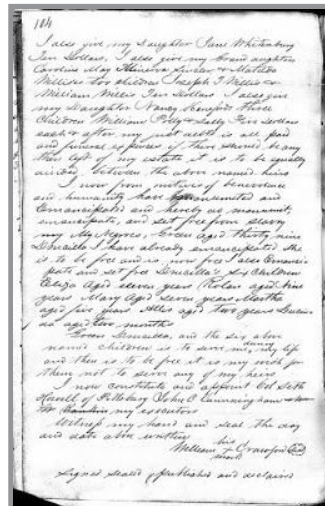 104
I also give my Daughter Jane Whitenburg
Ten Dollars. I also give my Grand aughters
Caroline May Minerva Sinclar & Matilda
Millions two children Joseph T Millis &
William Millis Ten Dollars I also give
my Daughter Nancy three
Children William Polly & Sally Five Dollars
each & after my just debts is all paid
and funeral expenses if there should be any
thin left of my estate it is to be equally
divided between the above named heirs
I now from motives of benevolence
and humanity have manumited and
Emancipated and hereby do manumit
emancipate, and set free from slavery
my Negroes, Green aged thirty nine
I have already emancipated She
is to be free and is now free I also Emanci-
pate and set free Six Children
Eliza Aged eleven years aged Nine
years Mary Aged Seven years Martha
aged five years aged two years
aged two months
Green and the six above
named children is to serve me, during my life
and then is to be free it is my wish for
them not to serve any of my heirs
I now constitute and appoint Col Seth
Howell of Pittsburg John C Cunningham
my executors
Witness my hand and seal the day
and date above written
his
William X Crawford Seal
mark
Signed sealed published and declared